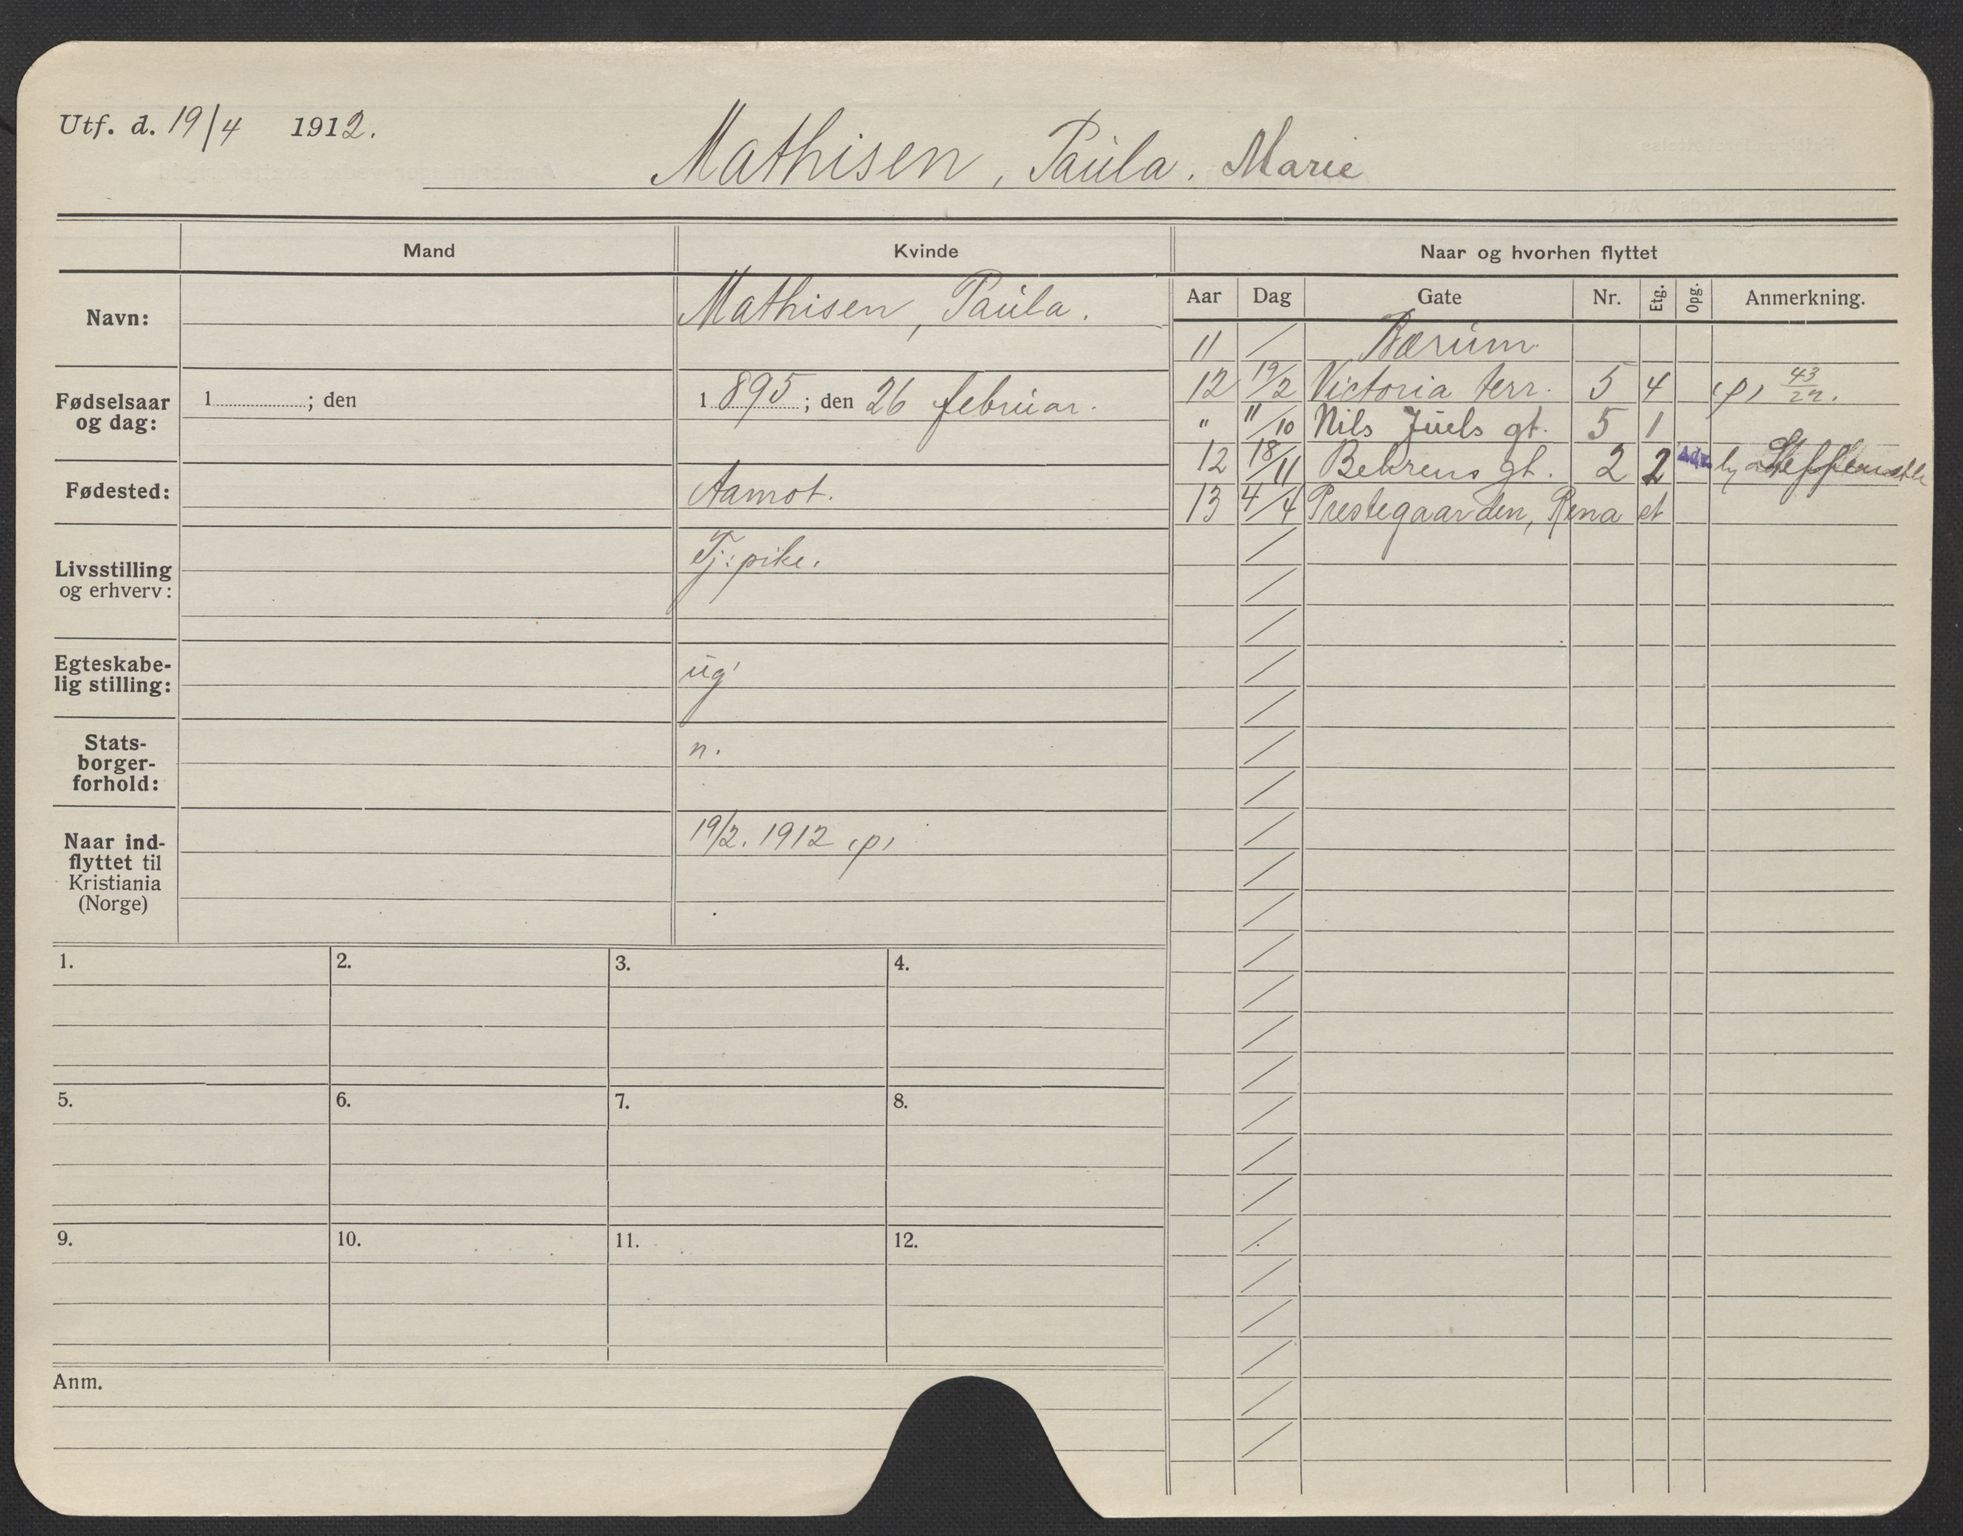 Utf. d. 19/4 1912.
Mathisen, Paula. Marie
Mand
Kvinde
Naar og hvorhen flyttet
Navn:
Mathisen, Paula.
Fødselsaar og dag:
1 ; den
1895; den 26 februar.
Fødested:
Aamot.
Livsstilling og erhverv:
Tj: pike.
Egteskabe-
lig stilling:
ug
Stats-
borger-
forhold:
n.
Naar ind-
flyttet til
Kristiania
(Norge)
19/2. 1912 (p)
Aar Dag Gate Nr. Etg. Opg. Anmerkning.
11 / Bærum
12 19/2 Victoria terr. 5 4 (p) 43/22.
" "/10 Nils Juels gt. 5 1
12 18/11 Behrens gt. 2 2 Adr.
13 4/4 Prestegaarden, Rena st
1.
2.
3.
4.
5.
6.
7.
8.
9.
10.
11.
12.
Anm.